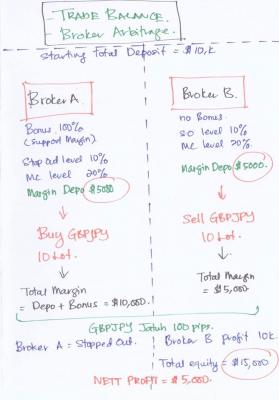 - TRADE BALANCE.
- Broker Arbitrage.
Starting Total Deposit = $10,k
Broker A.
Bonus 100%
(support Margin)
Stop out level 10%
MC level 20%
Margin Depo $5000
Buy GBPJPY
10 Lot.
Total Margin
= Depo + Bonus = $10,000.
Broker B.
no Bonus.
SO level 10%
MC level 20%
Margin Depo $5000.
Sell GBPJPY
10 Lot.
Total Margin
= $5,000.
GBPJPY Jatuh 100 pips.
Broker A = Stopped Out.
Broker B profit 10k.
Total equity = $15,000.
NETT PROFIT = $5,000.